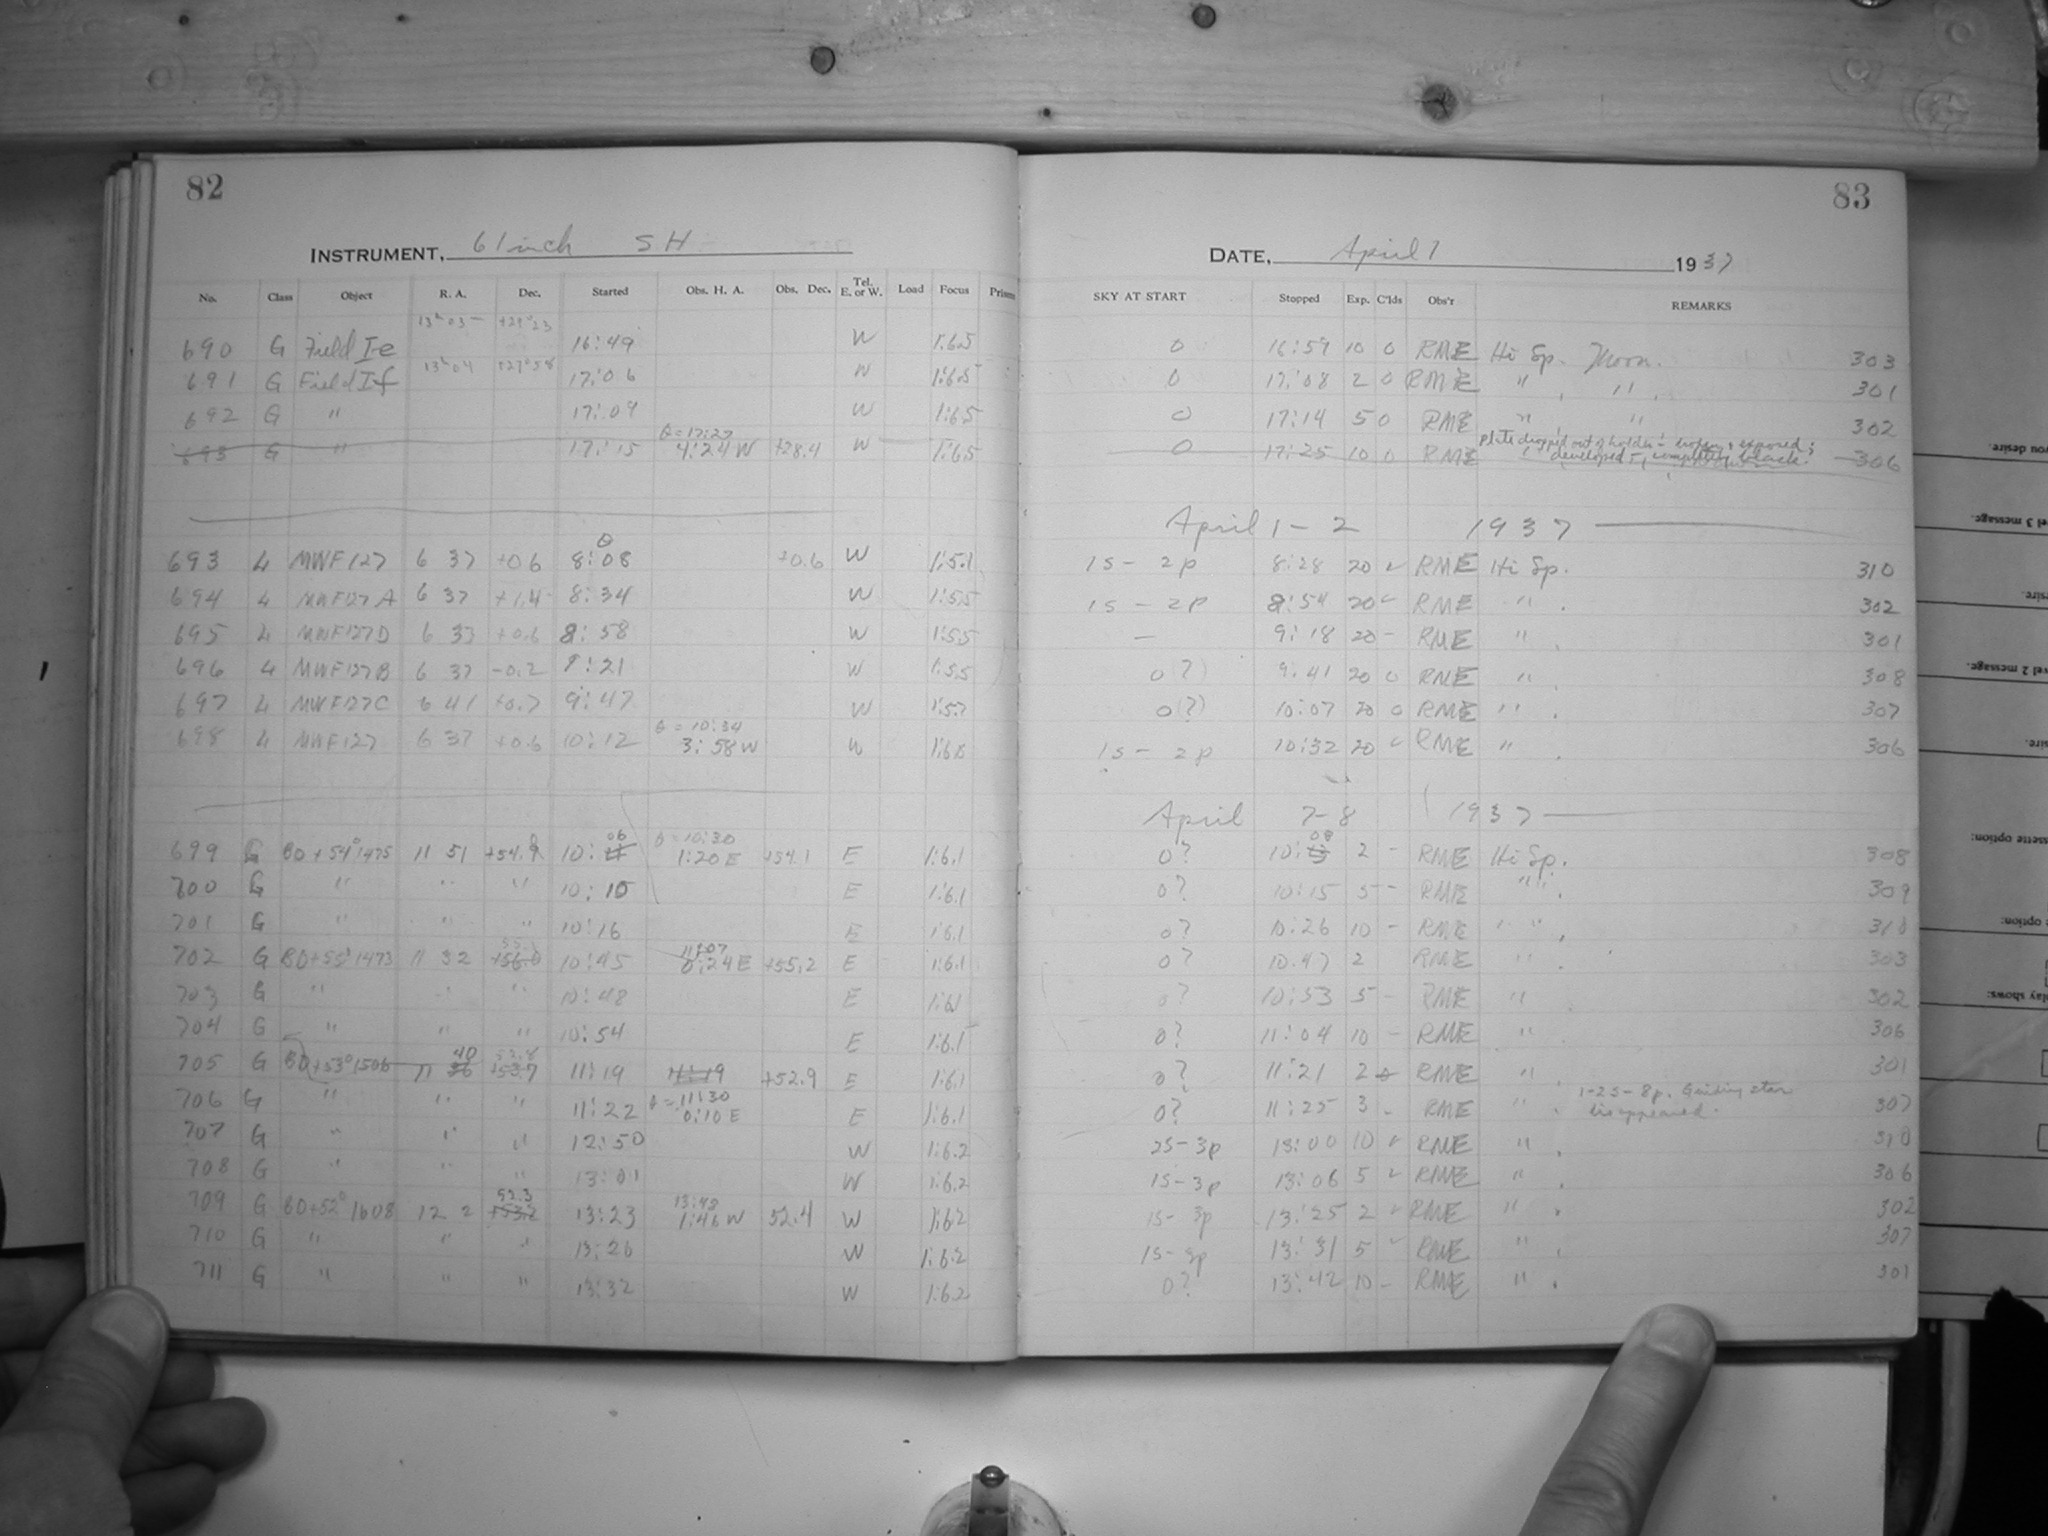 82
INSTRUMENT, 61 inch SH
No. Class Object R. A. Dec. Started Obs. H. A. Obs. Dec. Tel. E. or W. Load Focus Prisms
13h 03 +29°23
690 G Field Ie 16:49 W 1:6.5
13h 04 +27°58
691 G Field If 17:06 W 1:6.5
692 G " 17:09 W 1:6.5
θ = 17:27
693 G " 17:15 4:24 W +28.4 W 1:6.5
693 4 MWF127 6 37 +0.6 8:08 +0.6 W 1:5.1
694 4 MWF127A 6 37 +1.4 8:34 W 1:5.5
695 4 MWF127D 6 33 +0.6 8:58 W 1:5.5
696 4 MWF127B 6 37 -0.2 9:21 W 1:5.5
697 4 MWF127C 6 41 +0.7 9:47 W 1:5.7
θ = 10:34
698 4 MWF127 6 37 +0.6 10:12 3:58 W W 1:6.0
06 θ = 10:30
699 G BD+54°1475 11 51 +54.9 10: 1:20 E +54.1 E 1:6.1
700 G " " " 10:10 E 1:6.1
701 G " " " 10:16 E 1:6.1
11:07
702 G BD+55°1473 11 32 +56.0 10:45 0:24 E +55.2 E 1:6.1
703 G " " " 10:48 E 1:6.1
704 G " " " 10:54 E 1:6.1
40 52.8
705 G BD+53°1506 11 36 +53.7 11:19 11:19 +52.9 E 1:6.1
θ = 11:30
706 G " " " 11:22 0:10 E E 1:6.1
707 G " " " 12:50 W 1:6.2
708 G " " " 13:01 W 1:6.2
52.3 13:48
709 G BD+52°1608 12 2 +53.2 13:23 1:46 W 52.4 W 1:6.2
710 G " " " 13:26 W 1:6.2
711 G " " " 13:32 W 1:6.2
83
DATE, April 1 1937
SKY AT START Stopped Exp. C'lds Obs'r REMARKS
0 16:59 10 0 RME Hi Sp. Moon. 303
0 17:08 2 0 RME " " 301
0 17:14 5 0 RME " " 302
0 17:25 10 0 RME plate dropped out of holder - broken & exposed; 306
developed -, completely black.
April 1-2 1937
1s - 2p 8:28 20 RME Hi Sp. 310
1s - 2p 8:54 20 RME " 302
— 9:18 20 - RME " 301
0(?) 9:41 20 0 RME " 308
0(?) 10:07 20 0 RME " 307
1s - 2p 10:32 20 RME " 306
April 7-8 1937
08
0? 10: 2 - RME Hi Sp. 308
0? 10:15 5 - RME " 309
0? 10:26 10 - RME " 310
0? 10:47 2 RME " 303
0? 10:53 5 - RME " 302
0? 11:04 10 - RME " 306
0? 11:21 2 RME " 301
0? 11:25 3 - RME " 1-2s-8p. Guiding star 307
disappeared.
2s-3p 13:00 10 RME " 310
1s-3p 13:06 5 RME " 306
1s-3p 13:25 2 RME " 302
1s-3p 13:31 5 RME " 307
0? 13:42 10 - RME " 301
you desire.
vel 3 message.
vel 2 message.